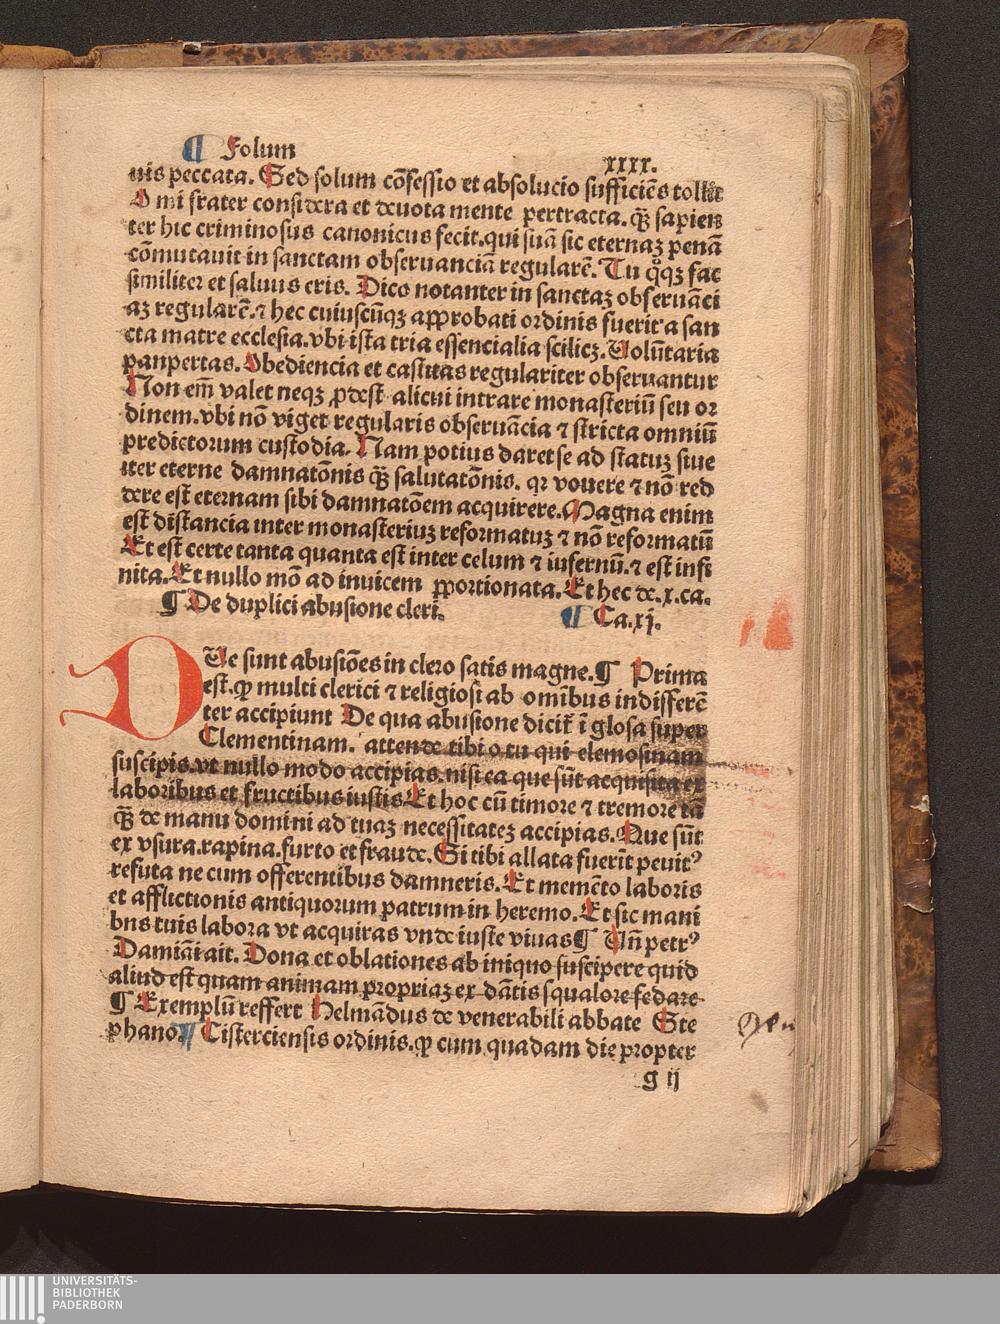 ¶ Folum xxxx.
nis peccata. Sed solum cōfessio et absolucio sufficiēs tollit
O mi frater considera et deuota mente pertracta. qƺ sapien
ter hic criminosus canonicus fecit. qui suā sic eternaꝫ penā
cōmutauit in sanctam obseruanciā regularē. Tu qͦqꝫ fac
similiter et saluus eris. Dico notanter in sanctaꝫ obseruāci
aꝫ regularē. ⁊ hec cuiuscūqꝫ approbati ordinis fuerit a san
cta matre ecclesia. vbi ista tria essencialia scilicꝫ. Volūtaria
panpertas. Obediencia et castitas regulariter obseruantur
Non em̄ valet neqꝫ ꝓdest alicui intrare monasteriū seu or
dinem. vbi nō viget regularis obseruācia ⁊ stricta omniū
predictorum custodia. Nam potius daret se ad statuꝫ siue
iter eterne damnatōnis qƺ salutatōnis. qꝛ vouere ⁊ nō red
dere est eternam sibi damnatōem acquirere. Magna enim
est distancia inter monasteriuꝫ reformatuꝫ ⁊ nō reformatū
Et est certe tanta quanta est inter celum ⁊ infernū. ⁊ est infi
nita. Et nullo mō ad inuicem ꝓportionata. Et hec de. x. ca.
¶ De duplici abusione cleri. ¶ Ca. xj.
DVe sunt abusiōes in clero satis magne. ¶ Prima
est. ꝙ multi clerici ⁊ religiosi ab omībus indifferē
ter accipiunt De qua abusione dicit̄ ī glosa super
Clementinam. attende tibi o tu qui elemosinam
suscipis. vt nullo modo accipias. nisi ea que sūt acquisita ex
laboribus et fructibus iustis. Et hoc cū timore ⁊ tremore tā
qƺ de manu domini ad tuaꝫ necessitateꝫ accipias. Que sūt
ex vsura. rapina. furto et fraude. Si tibi allata fuerīt penit⁹
refuta ne cum offerentibus damneris. Et memēto laboris
et afflictionis antiquorum patrum in heremo. Et sic mani
bns tuis labora vt acquiras vnde iuste viuas ¶ Vn̄ petr⁹
Damiāi ait. Dona et oblationes ab iniquo suscipere quid
aliud est quam animam propriaꝫ ex dātis squalore fedare
¶ Exemplū reffert Helmādus de venerabili abbate Ste
phano. ¶ Cisterciensis ordinis. ꝙ cum quadam die propter
g ij
UNIVERSITÄTS-
BIBLIOTHEK
PADERBORN